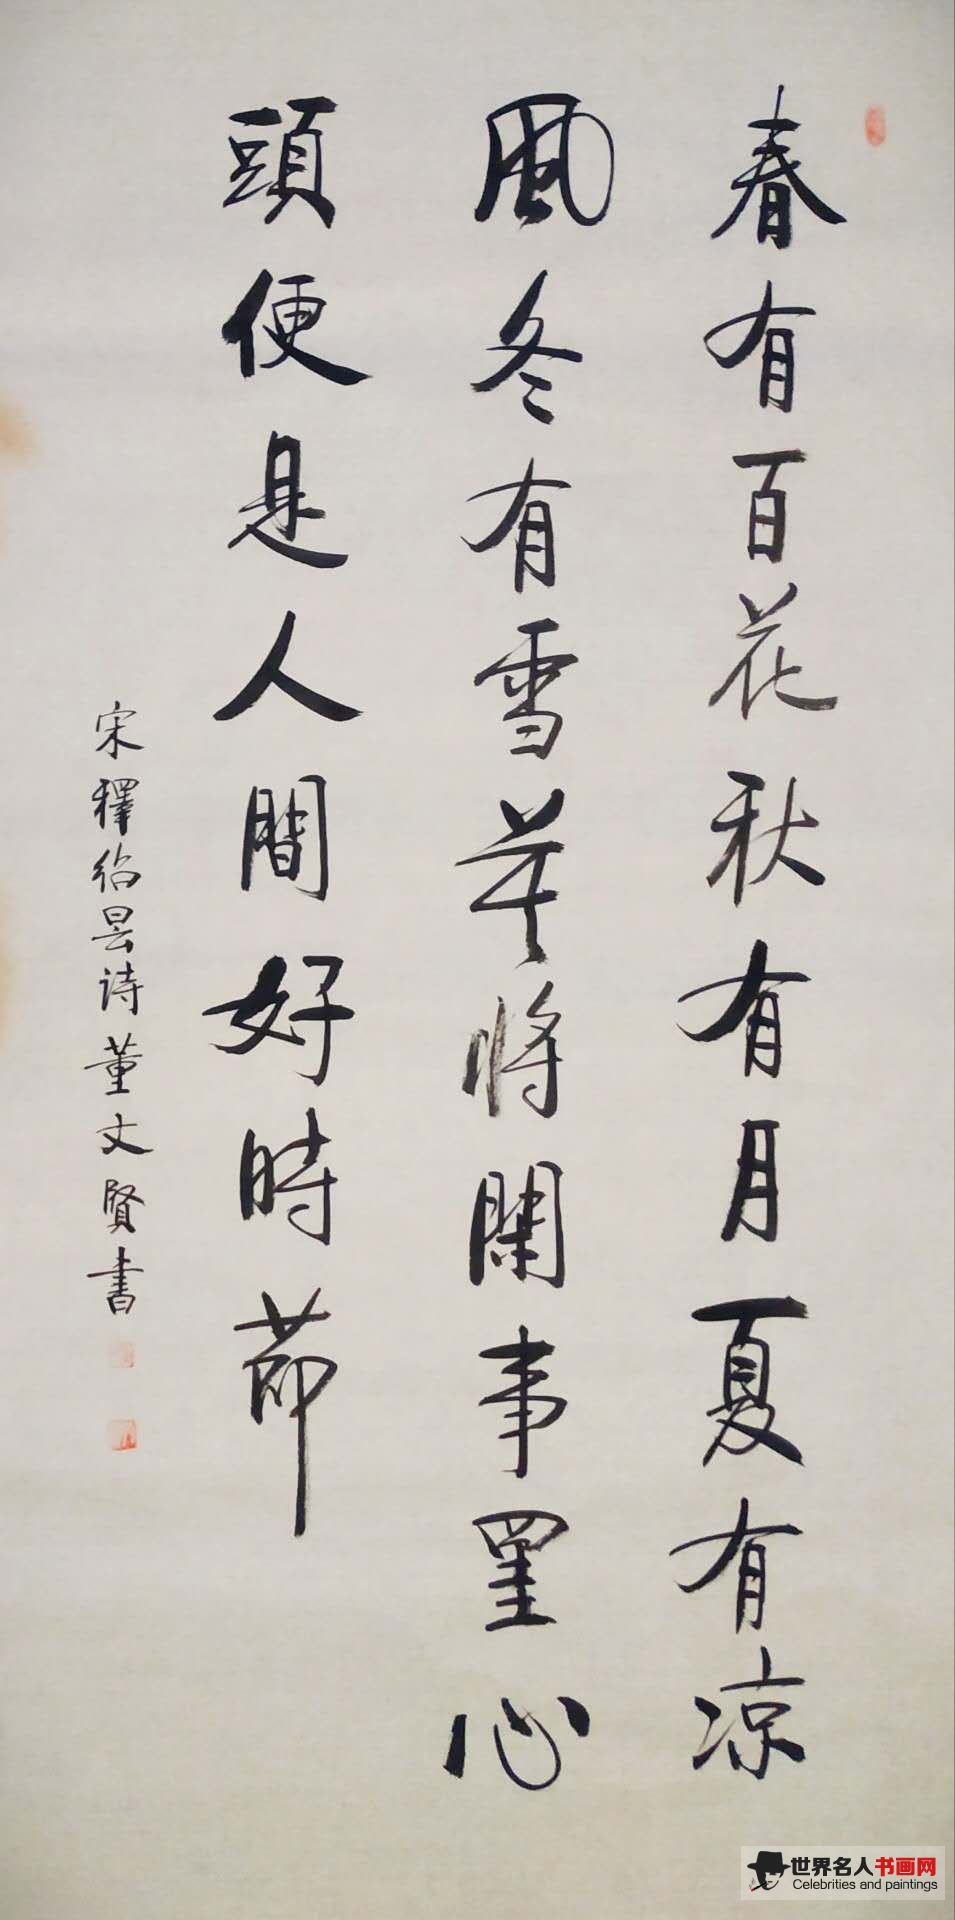 春有百花秋有月夏有凉
風冬有雪莫将閑事罣心
頭便是人間好時節
宋釋绍昙诗董文賢書
世界名人书画网
Celebrities and paintings